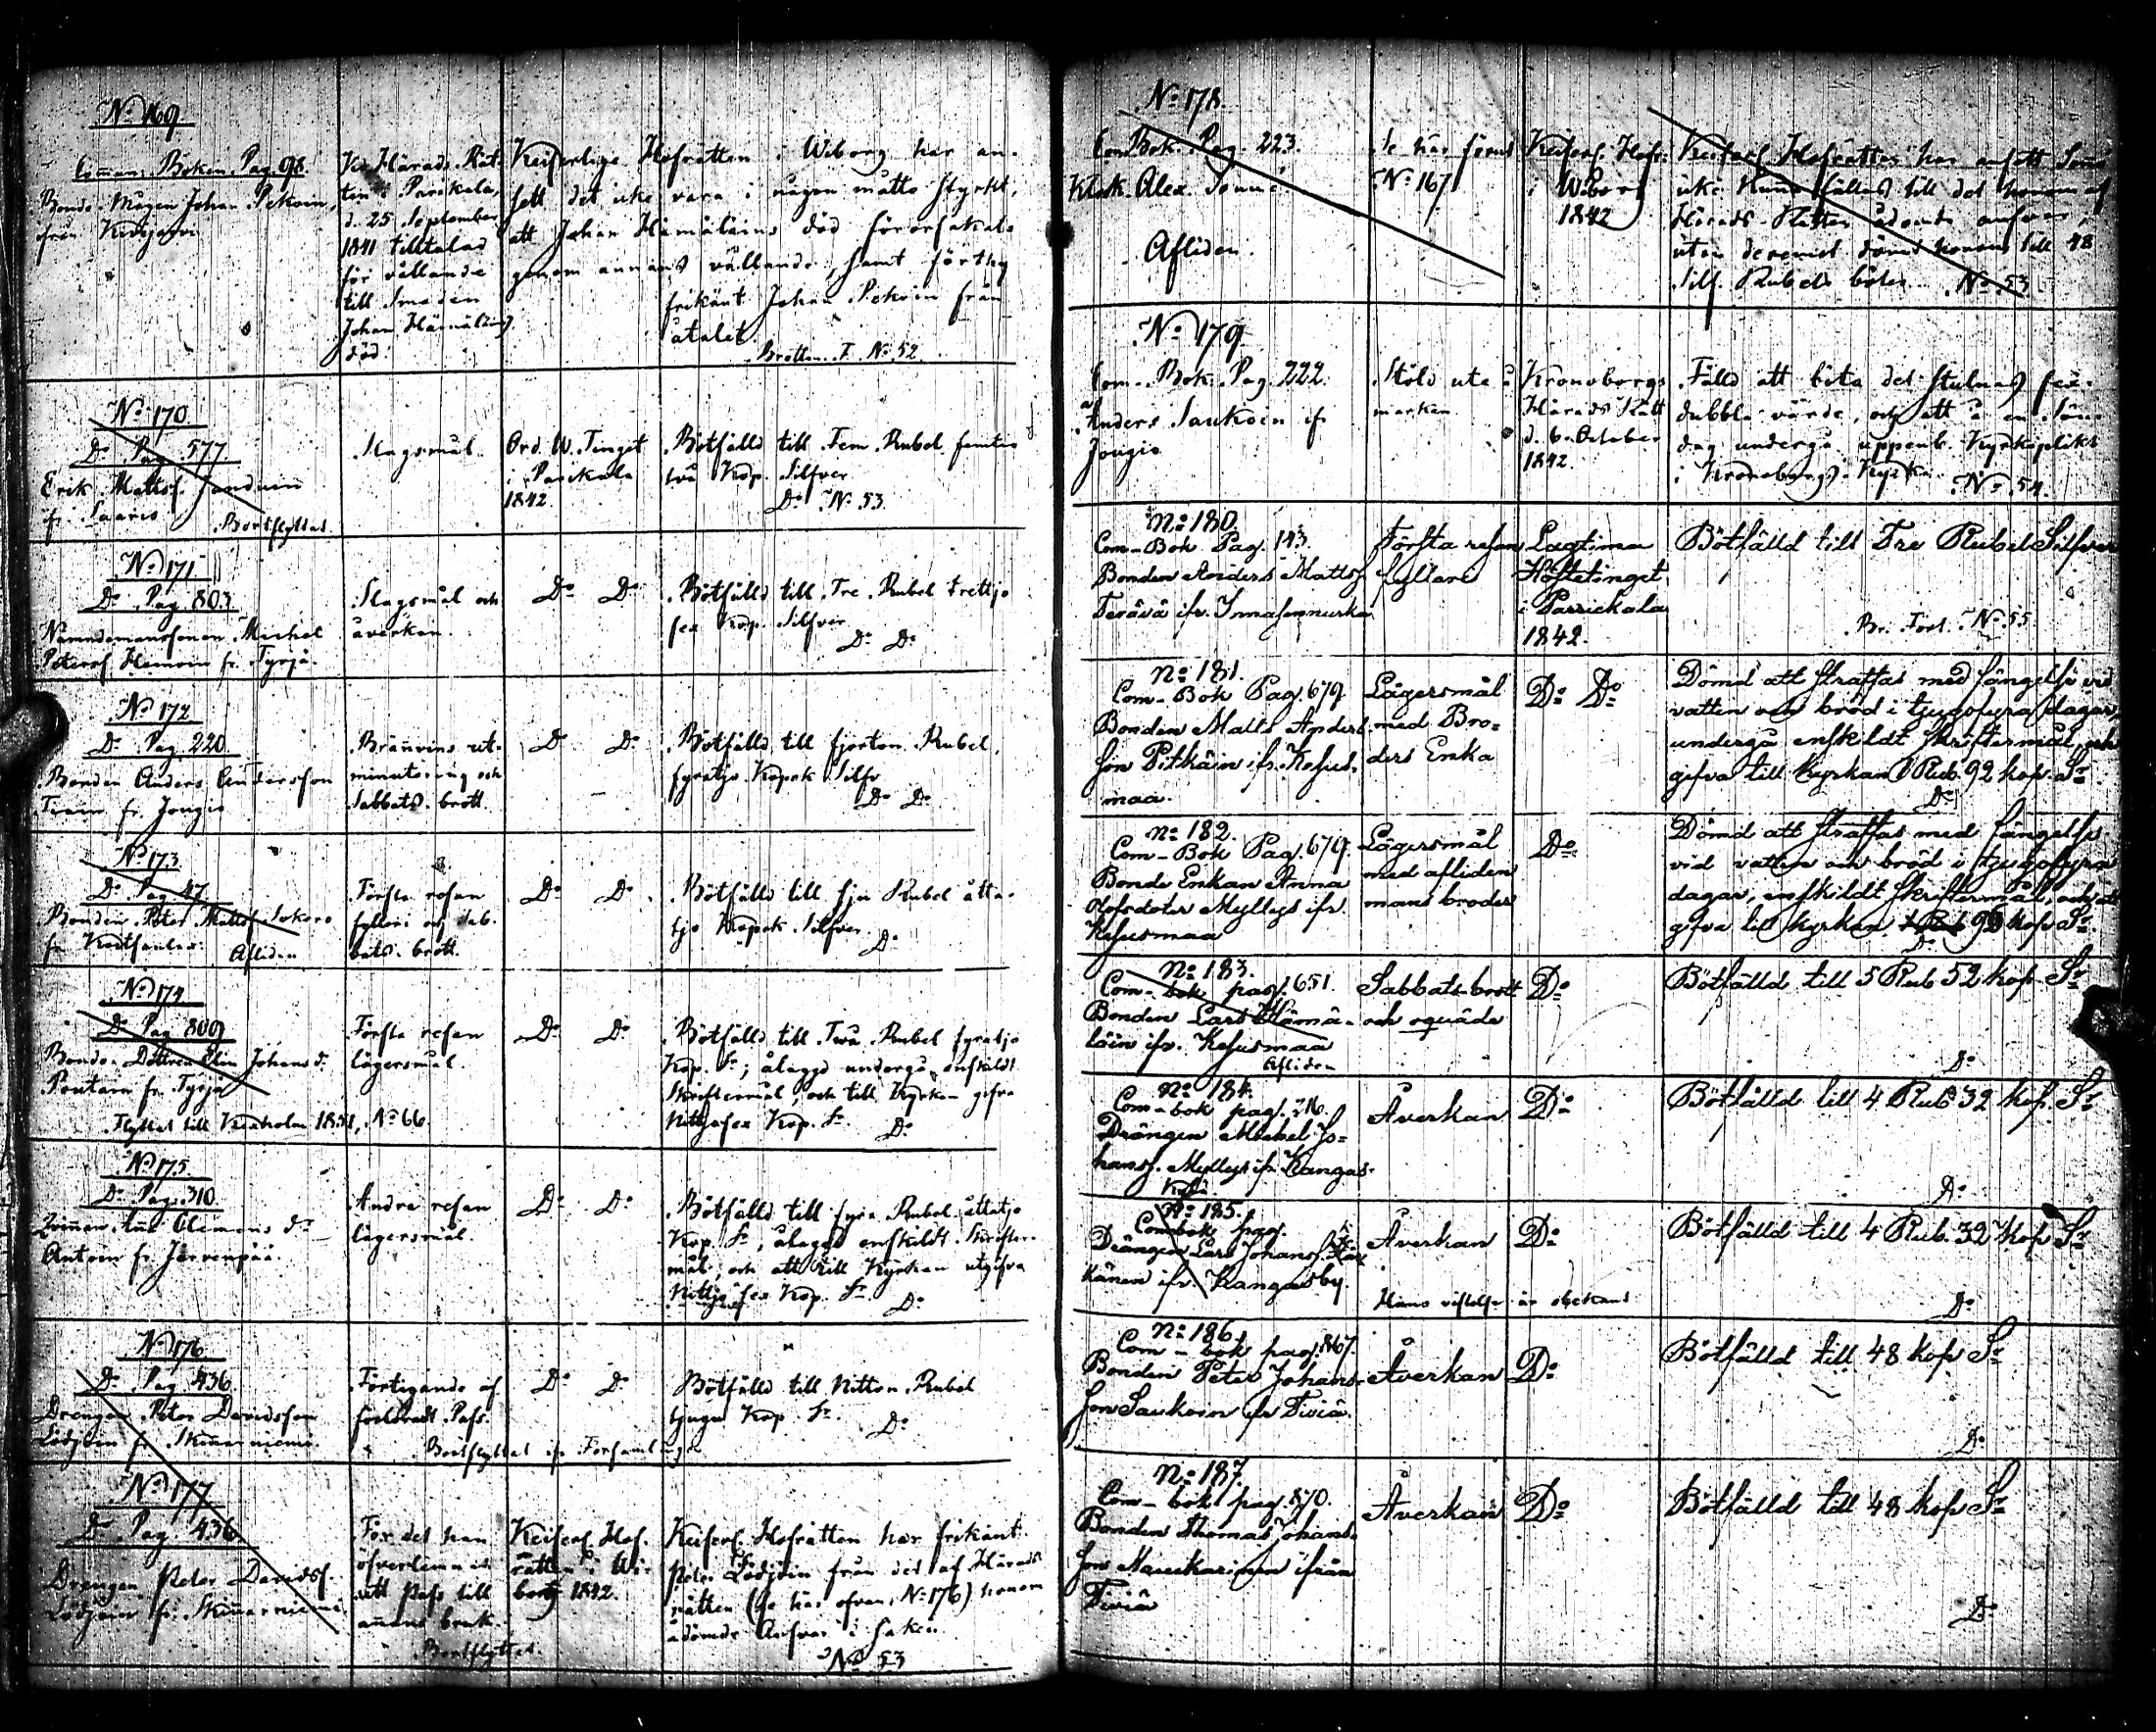 No 169.
Comun. Boken Pag. 98.
Bonde Mågen Johan Pekoin,
från Kirjavi
Vid Härads Rät-
ten i Parikala,
d. 25 September
1841 tilltalad
för vållande
till Smeden
Johan Hämäläins
död.
Keiserlige Hofrätten i Wiborg har an-
sett det icke vara i någon måtto styrkt,
att Johan Hämäläins död förorsakats
genom annans vållande, samt förthy
frikänt Johan Pekoin från
åtalet.
Brottm. F. No 52.
No 170
Do Pag. 577.
Erik Mattsf. Janduin
fr. Saaris
Bortflyttat.
Slagsmål.
Ord. W. Tinget
i Parikala
1842.
Bötfälld till Fem Rubel femtio
två Kop. Silfver
Do No 53.
No 171
Do Pag. 803.
Nämndemanssonen Michel
Petersf. Hemoin fr. Tyrjä.
Slagsmål och
åverkan.
Do Do
Bötfälld till Tre Rubel trettio
sex Kop. Silfver
Do Do
No 172
Do Pag. 220.
Bonden Anders Andersson
fr. Jougio
Bränvins ut-
minutering och
Sabbats-brott.
Do Do
Bötfälld till fjorton Rubel
fyratio Kopek Silfv
Do Do
No 173.
Do Pag. 47
Bonden Peter Mattsf. Sokero
Afliden
Första resan
fylleri och sab-
bats-brott.
Do Do
Bötfälld till sju Rubel åtta-
tjo Kopek Silfver.
Do
No 174
Do Pag. 809
Bonde Dottren Elin Johansd.
Pontain fr. Tyrjä
Flyttat till Kexholm 1851, No 66
Första resan
lägersmål.
Do Do
Bötfälld till Twå Rubel fyratjo
Kop. Sr; ålaggd undergå enskildt
Skriftermål, och till Kyrkan gifva
Nittjosex Kop. Sr.
Do
No 175.
Do Pag. 310
Clemens dr
Antoin fr. Järvenpää.
Andra resan
lägersmål.
Do Do
Bötfälld till fyra Rubel åttatjo
Kop. Sr, ålaggd enskildt Skrifter-
mål, och att till Kyrkan utgifva
Nittjosex Kop. Sr.
Do
No 176
Do Pag. 436
Drengen Peter Davidsson
Lödjöin fr. Skinnarniemi.
Förtigande af
förloradt Pass.
Bortflyttat ifr. Församling.
Do Do
Bötfälld till Nitton Rubel
tjugu Kop. Sr.
Do
No 177
Do Pag. 436
Drengen Peter Davidsf.
Lödjöin fr. Skinnarniemi
För det han
öfverlemnat
sitt Pass till
annans bruk.
Bortflyttat.
Keiserl. Hof-
rätten i Wi-
borg 1842.
Keiserl. Hofrätten har frikänt
Peter Lödjöin från det af Härads
rätten (Se här ofvan, No 176) honom
ådömde Ansvar i saken.
No 53
No 178.
Com Bok. Pag. 223.
Klock. Alex.
Afliden.
Se här förut
No 167
Keiserl. Hofr.
i Wiborg
1842
Keiserl. Hofrätten har ansett
icke kunna fällas till det honom af
Härads Rätten ådömde ansvar,
utan deremot dömt honom till 48
Silf. Rubels böter. No 53
No 179
Com. Bok. Pag. 222.
Anders Saukoin if.
Jougio
Stöld ute å
marken.
Kronoborgs
Härads Rätt
d. 6 October
1842.
Fälld att böta det stulnas sex-
dubbla värde, och att å en Sön-
dag undergå uppenb. Kyrkoplikt
i Kronoborgs Kyrka. No 54.
No 180.
Com-Bok Pag. 143.
Bonden Anders Mattsf.
Terävä ifr. Innasennurka
Första resan
fylleri
Lagtima
Hösttetinget
i Parrickala
1842.
Bötfälld till Tre Rubel Silfver
Br. Fört. No 55.
No 181.
Com-Bok Pag. 679.
Bonden Matts Anders
son Pitkäin ifr. Kesus-
maa.
Lägersmål
med Bro-
ders Enka
Do Do
Dömd att straffas med fängelse vid
vatten och bröd i tjugofyra dagar,
undergå enskildt skriftermål, och
gifva till kyrkan 1 Rub. 92 kop. Sr.
Do
No 182.
Com-Bok Pag. 679.
Bonde Enkan Anna
Olofsdoter Myllys ifr.
Kesusmaa
Lägersmål
med afliden
mans broder
Do
Dömd att straffas med fängelse
vid vatten och bröd i tjugofyra
dagar, enskildt skriftermål, och att
gifva till kyrkan 96 kop Sr.
Do
No 183.
Com-bok pag. 651.
Bonden Lars Hämä-
läin ifr. Kesusmaa
Afliden
Sabbats-brott
och oquäde
Do
Bötfälld till 5 Rub 52 kop. Sr
Do
No 184.
Com-bok pag. 216.
Drängen Michel Jo-
hansf. Myllys ifr. Kangas-
kylä.
Åverkan
Do
Bötfälld till 4 Rub 32 kop. Sr
Do
No 185.
Combok pag.
Drängen Lars Johansf.
känen ifr. Kangasby.
Åverkan
Hans vistelse är obekant
Do
Bötfälld till 4 Rub. 32 kop Sr
Do
No 186.
Com-bok pag. 867.
Bonden Peter Johans-
son Saukoin ifr Tiviä.
Åverkan
Do
Bötfälld till 48 kop Sr
Do
No 187.
Com-bok pag. 870.
Bonden Thomas Johans-
son Maukarinen ifrån
Tiviä
Åverkan
Do
Bötfälld till 48 kop Sr
Do